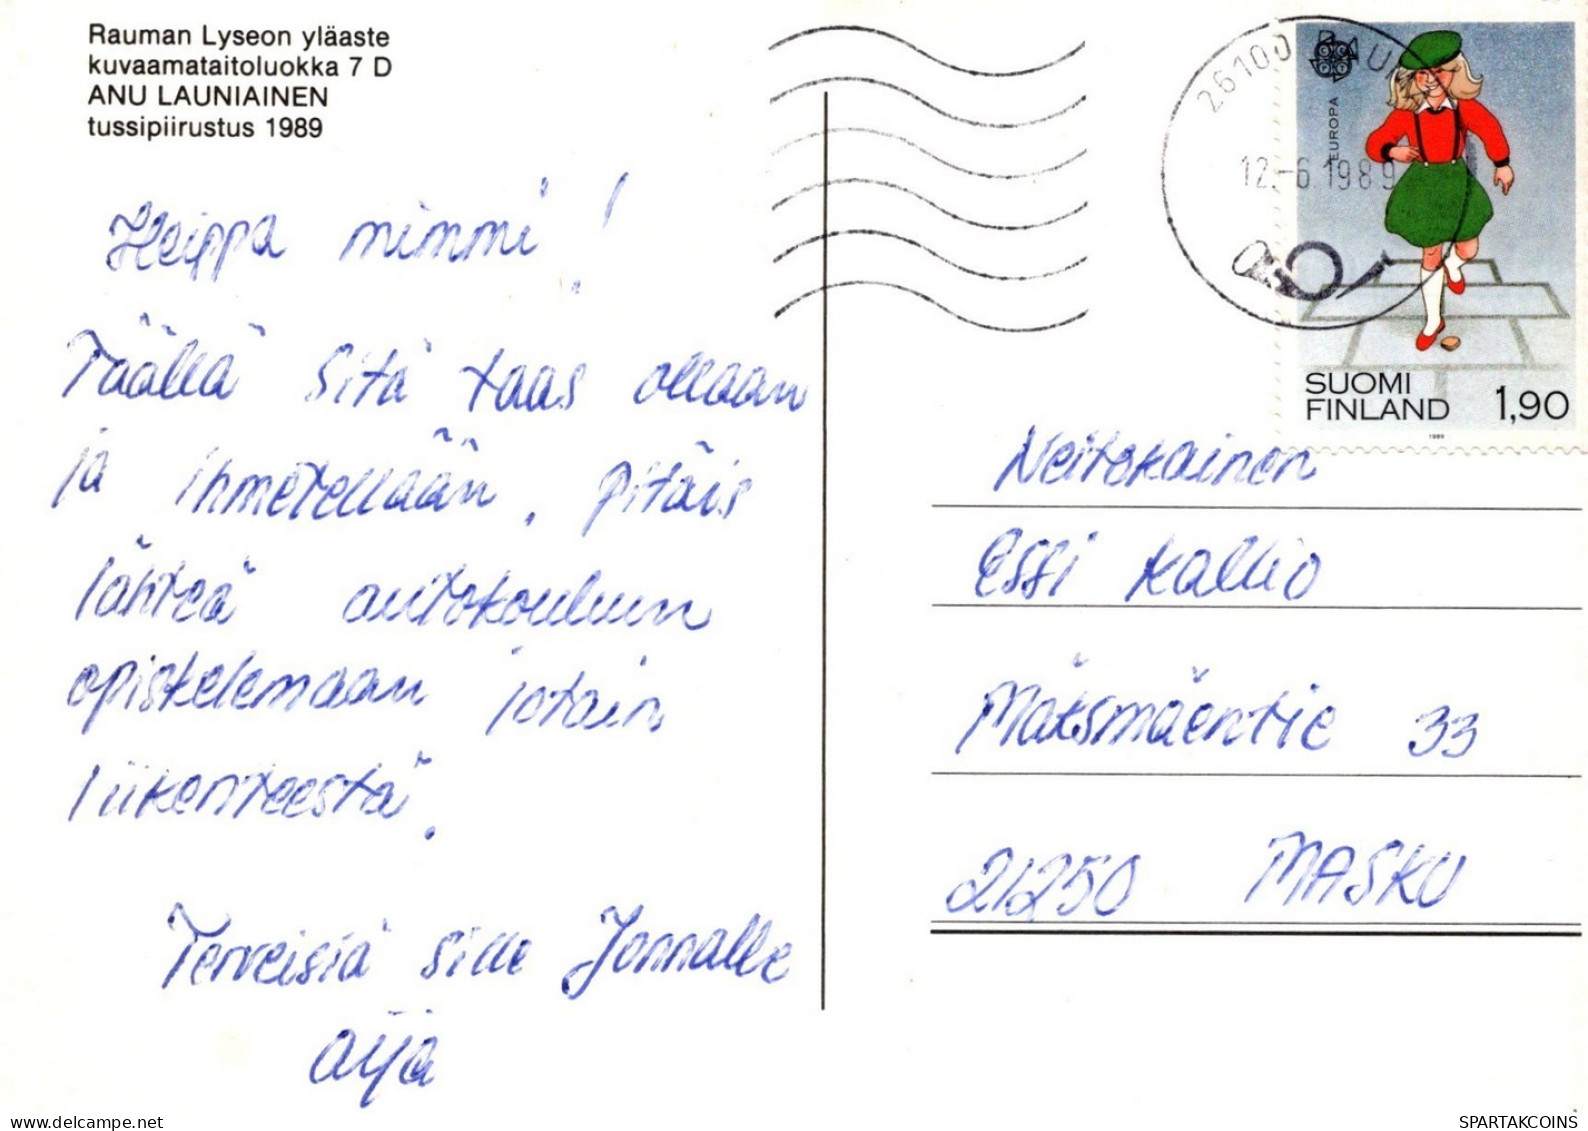 Rauman Lyseon yläaste
kuvaamataitoluokka 7 D
ANU LAUNIAINEN
tussipiirustus 1989
Heippa mimmi!
Täällä sitä taas ollaan
ja ihmetellään. pitäis
lähteä autokouluun
opiskelemaan jotain
liikenteestä.
Terveisiä sille Jonnalle
Aija
26100 RAUMA
12.-6.1989
EUROPA
CEPT
SUOMI
FINLAND 1,90
1989
Neitokainen
Essi Kallio
Mäksmäentie 33
21250 MASKU
delcampe.net
SPARTAKCOINS